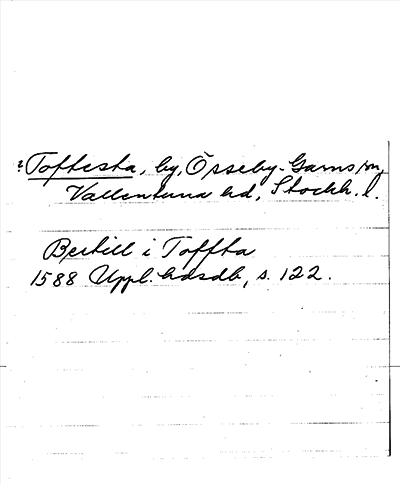 ? Toftesta, by, Össeby-Garns sn,
Vallentuna hd, Stockh. l.
Bertill i Toffta
1588 Uppl. hdsdb, s. 122.